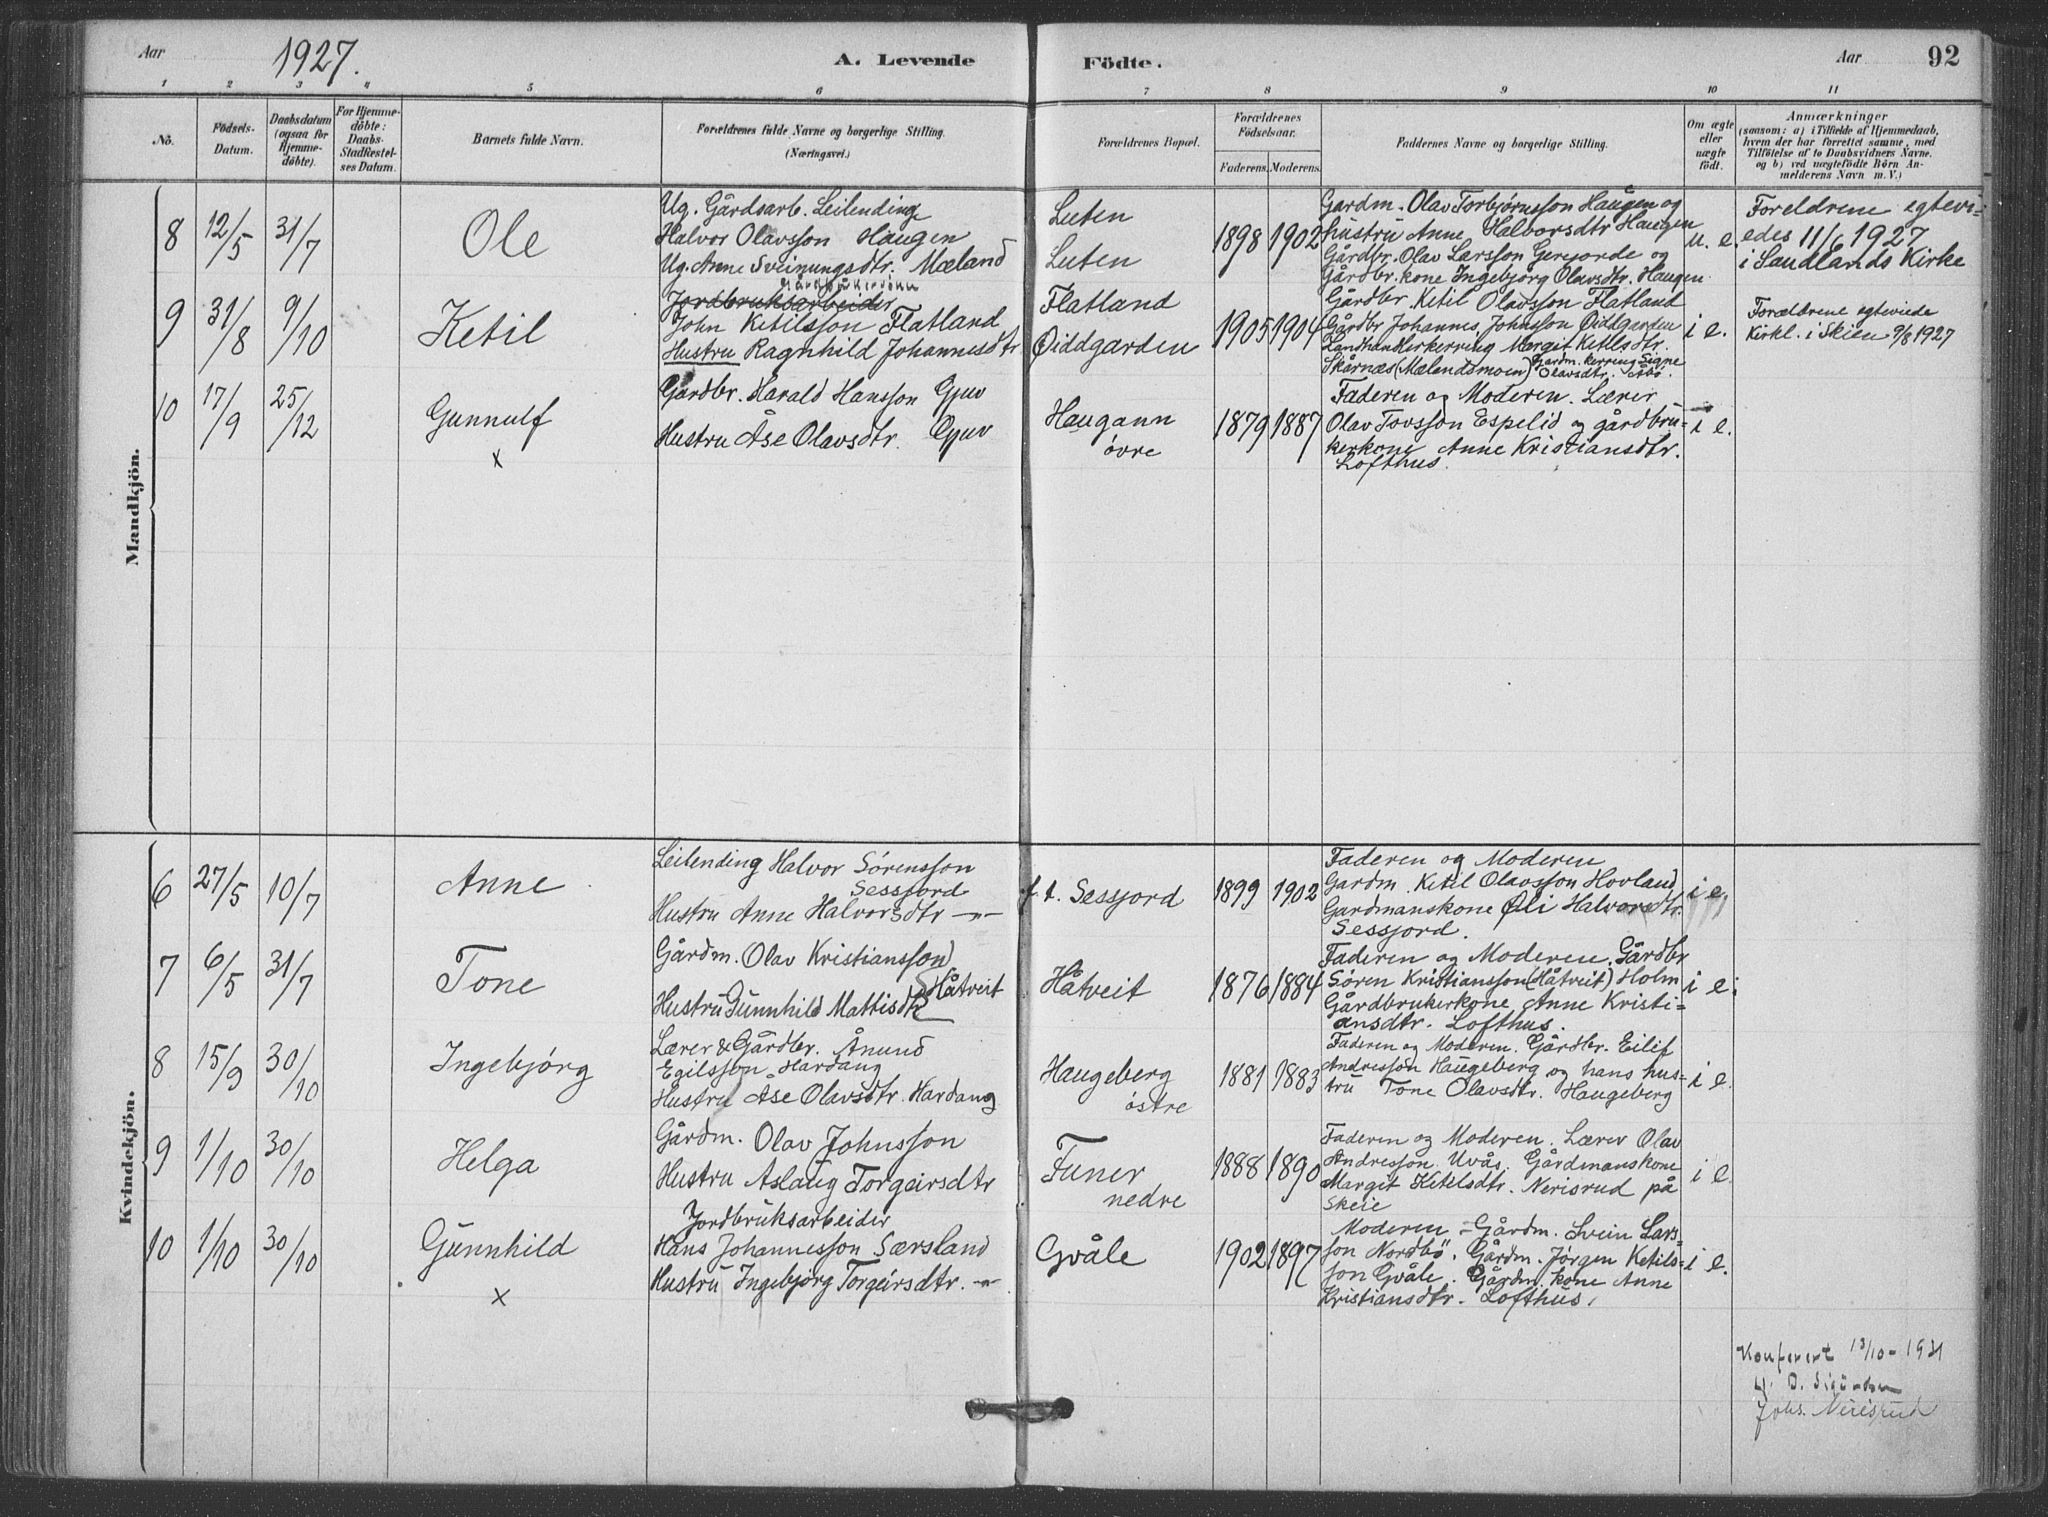 Aar 1927. A. Levende Födte. Aar 92
1 2 3 4 5 6 7 8 9 10 11
No.
Födsels-
Datum.
Daabsdatum
(ogsaa for
Hjemme-
döbte).
For Hjemme-
döbte:
Daabs-
Stadfestel-
ses Datum.
Barnets fulde Navn.
Forældrenes fulde Navne og borgerlige Stilling.
(Næringsvei.)
Forældrenes Bopæl.
Forældrenes
Födselsaar.
Faderens. Moderens.
Faddernes Navne og borgerlige Stilling.
Om ægte
eller
uægte
födt.
Anmærkninger
(saasom: a) i Tilfælde af Hjemmedaab,
hvem der har forrettet samme, med
Tilföielse af to Daabsvidners Navne.
og b) ved uægtefödte Börn An-
melderens Navn m. V.)
Mandkjön.
8 12/5 31/7 Ole
Ug. Gårdsarb. Leilending
Halvor Olavsson Haugen
Ug. Anne Sveinungsdtr. Mæland
Luten
Luten
1898 1902
Gardm. Olav Torbjørnsson Haugen og
hustru Anne Halvorsdtr Haugen
Gårdbr. Olav Larsson Gerejorde og
Gårdbr. kone Ingebjørg Olavsdtr. Haugen
u. e.
Foreldrene egtevi-
edes 11/6 1927
i Saudlands Kirke
9 31/8 9/10 Ketil
Gårdbrukersønn
Jordbruksarbeider
John Ketilsson Flatland
Hustru Ragnhild Johannesdtr
Flatland
Øiddgarden
1905 1904
Gårdbr. Ketil Olavsson Flatland
Gårdbr Johannes Johnsson Øiddgarden
Landhandlerkerring Margit Ketilsdtr.
Skårnæs (Mælandsmoen) Gardm. kerring Signe
Olavsdtr.
i e.
Forældrene egteviede
Kirkl. i Skien 9/8 1927
10 17/9 25/12 Gunnulf
x
Gårdbr. Harald Hansson Gjuv
Hustru Åse Olavsdtr. Gjuv
Haugann
øvre
1879 1887
Faderen og Moderen. Lærer
Olav Tovsson Espelid og gårdbru-
kerkone Anne Kristiansdtr.
Lofthus.
i e.
Kvindekjön.
6 27/5 10/7 Anne
Leilending Halvor Sørensson
Sessjord
Hustru Anne Halvorsdtr -"-
f. t. Sessjord
1899 1902
Faderen og Moderen
Gardm. Ketil Olavsson Hovland
Gardmanskone Øli Halvorsdtr.
Sessjord.
i e,
7 6/5 31/7 Tone
Gårdm. Olav Kristiansson
Håtveit
Hustru Gunnhild Mattisdtr
Håtveit
1876 1884
Faderen og Moderen. Gårdbr
Søren Kristiansson (Håtveit) Holm
Gårdbrukerkone Anne Kristi-
ansdtr. Lofthus.
i e.
8 15/9 30/10 Ingebjørg
Lærer & Gårdbr. Ånund
Egilsson Hardang
Hustru Åse Olavsdtr. Hardang
Haugeberg
østre
1881 1883
Faderen og Moderen. Gårdbr. Eilif
Andresson Haugeberg og hans hus-
tru Tone Olavsdtr. Haugeberg
i e.
9 1/10 30/10 Helga
Gårdm. Olav Johnsson
Hustru Aslaug Torgeirsdtr
Funer
nedre
1888 1890
Faderen og Moderen. Lærer Olav
Andresson Uvås. Gårdmanskone
Margit Ketilsdtr. Nerisrud på
Skeie
i e.
10 1/10 30/10 Gunnhild
x
Jordbruksarbeider
Hans Johannesson Særsland
Hustru Ingebjørg Torgeirsdtr. -"-
Gvåle
1902 1897
Moderen - Gårdm. Svein Lars-
son Nordbö. Gårdm. Jørgen Ketils-
son Gvåle. Gårdm. kone Anne
Kristiansdtr. Lofthus.
i e.
Konferert 13/10-1931
Johs. Neirisrud